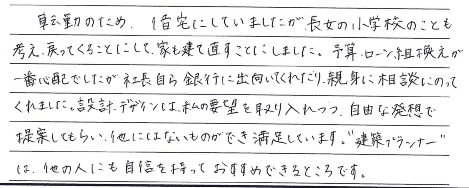 転勤のため、借宅にしていましたが、長女の小学校のことも
考え、戻ってくることにして、家も建て直すことにしました。予算、ローン組換えが
一番心配でしたが社長自ら銀行に出向いてくれたり、親身に相談にのって
くれました。設計、デザインは、私の要望を取り入れつつ、自由な発想で
提案してもらい、他にはないものができ満足しています。"建築プランナー"
は、他の人にも自信を持っておすすめできるところです。